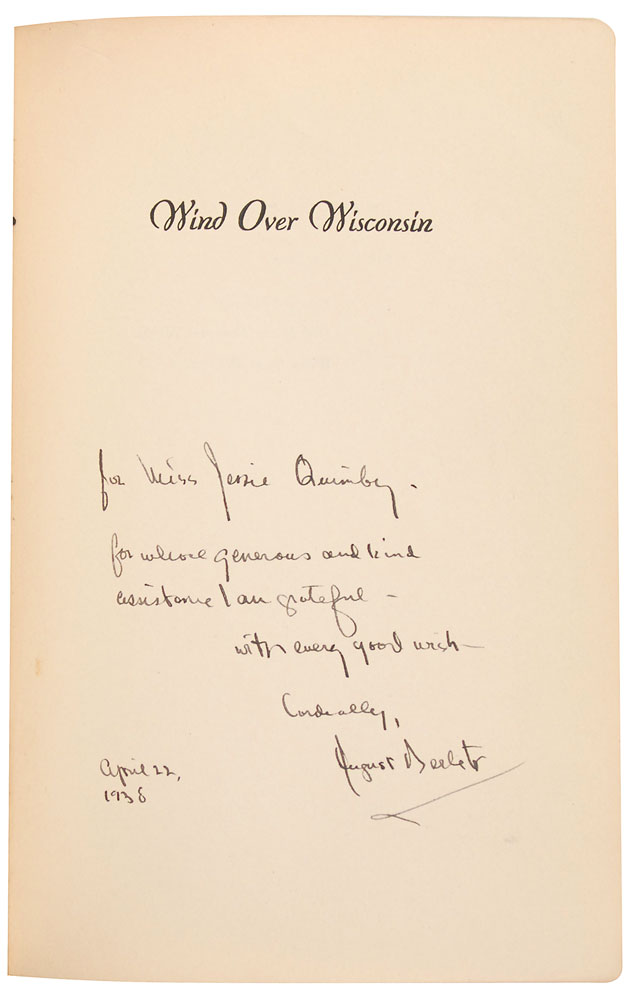 Wind Over Wisconsin
for Miss Jessie Quimby -
for whose generous and kind
assistance I am grateful -
with every good wish -
Cordially,
August Derleth
April 22,
1938